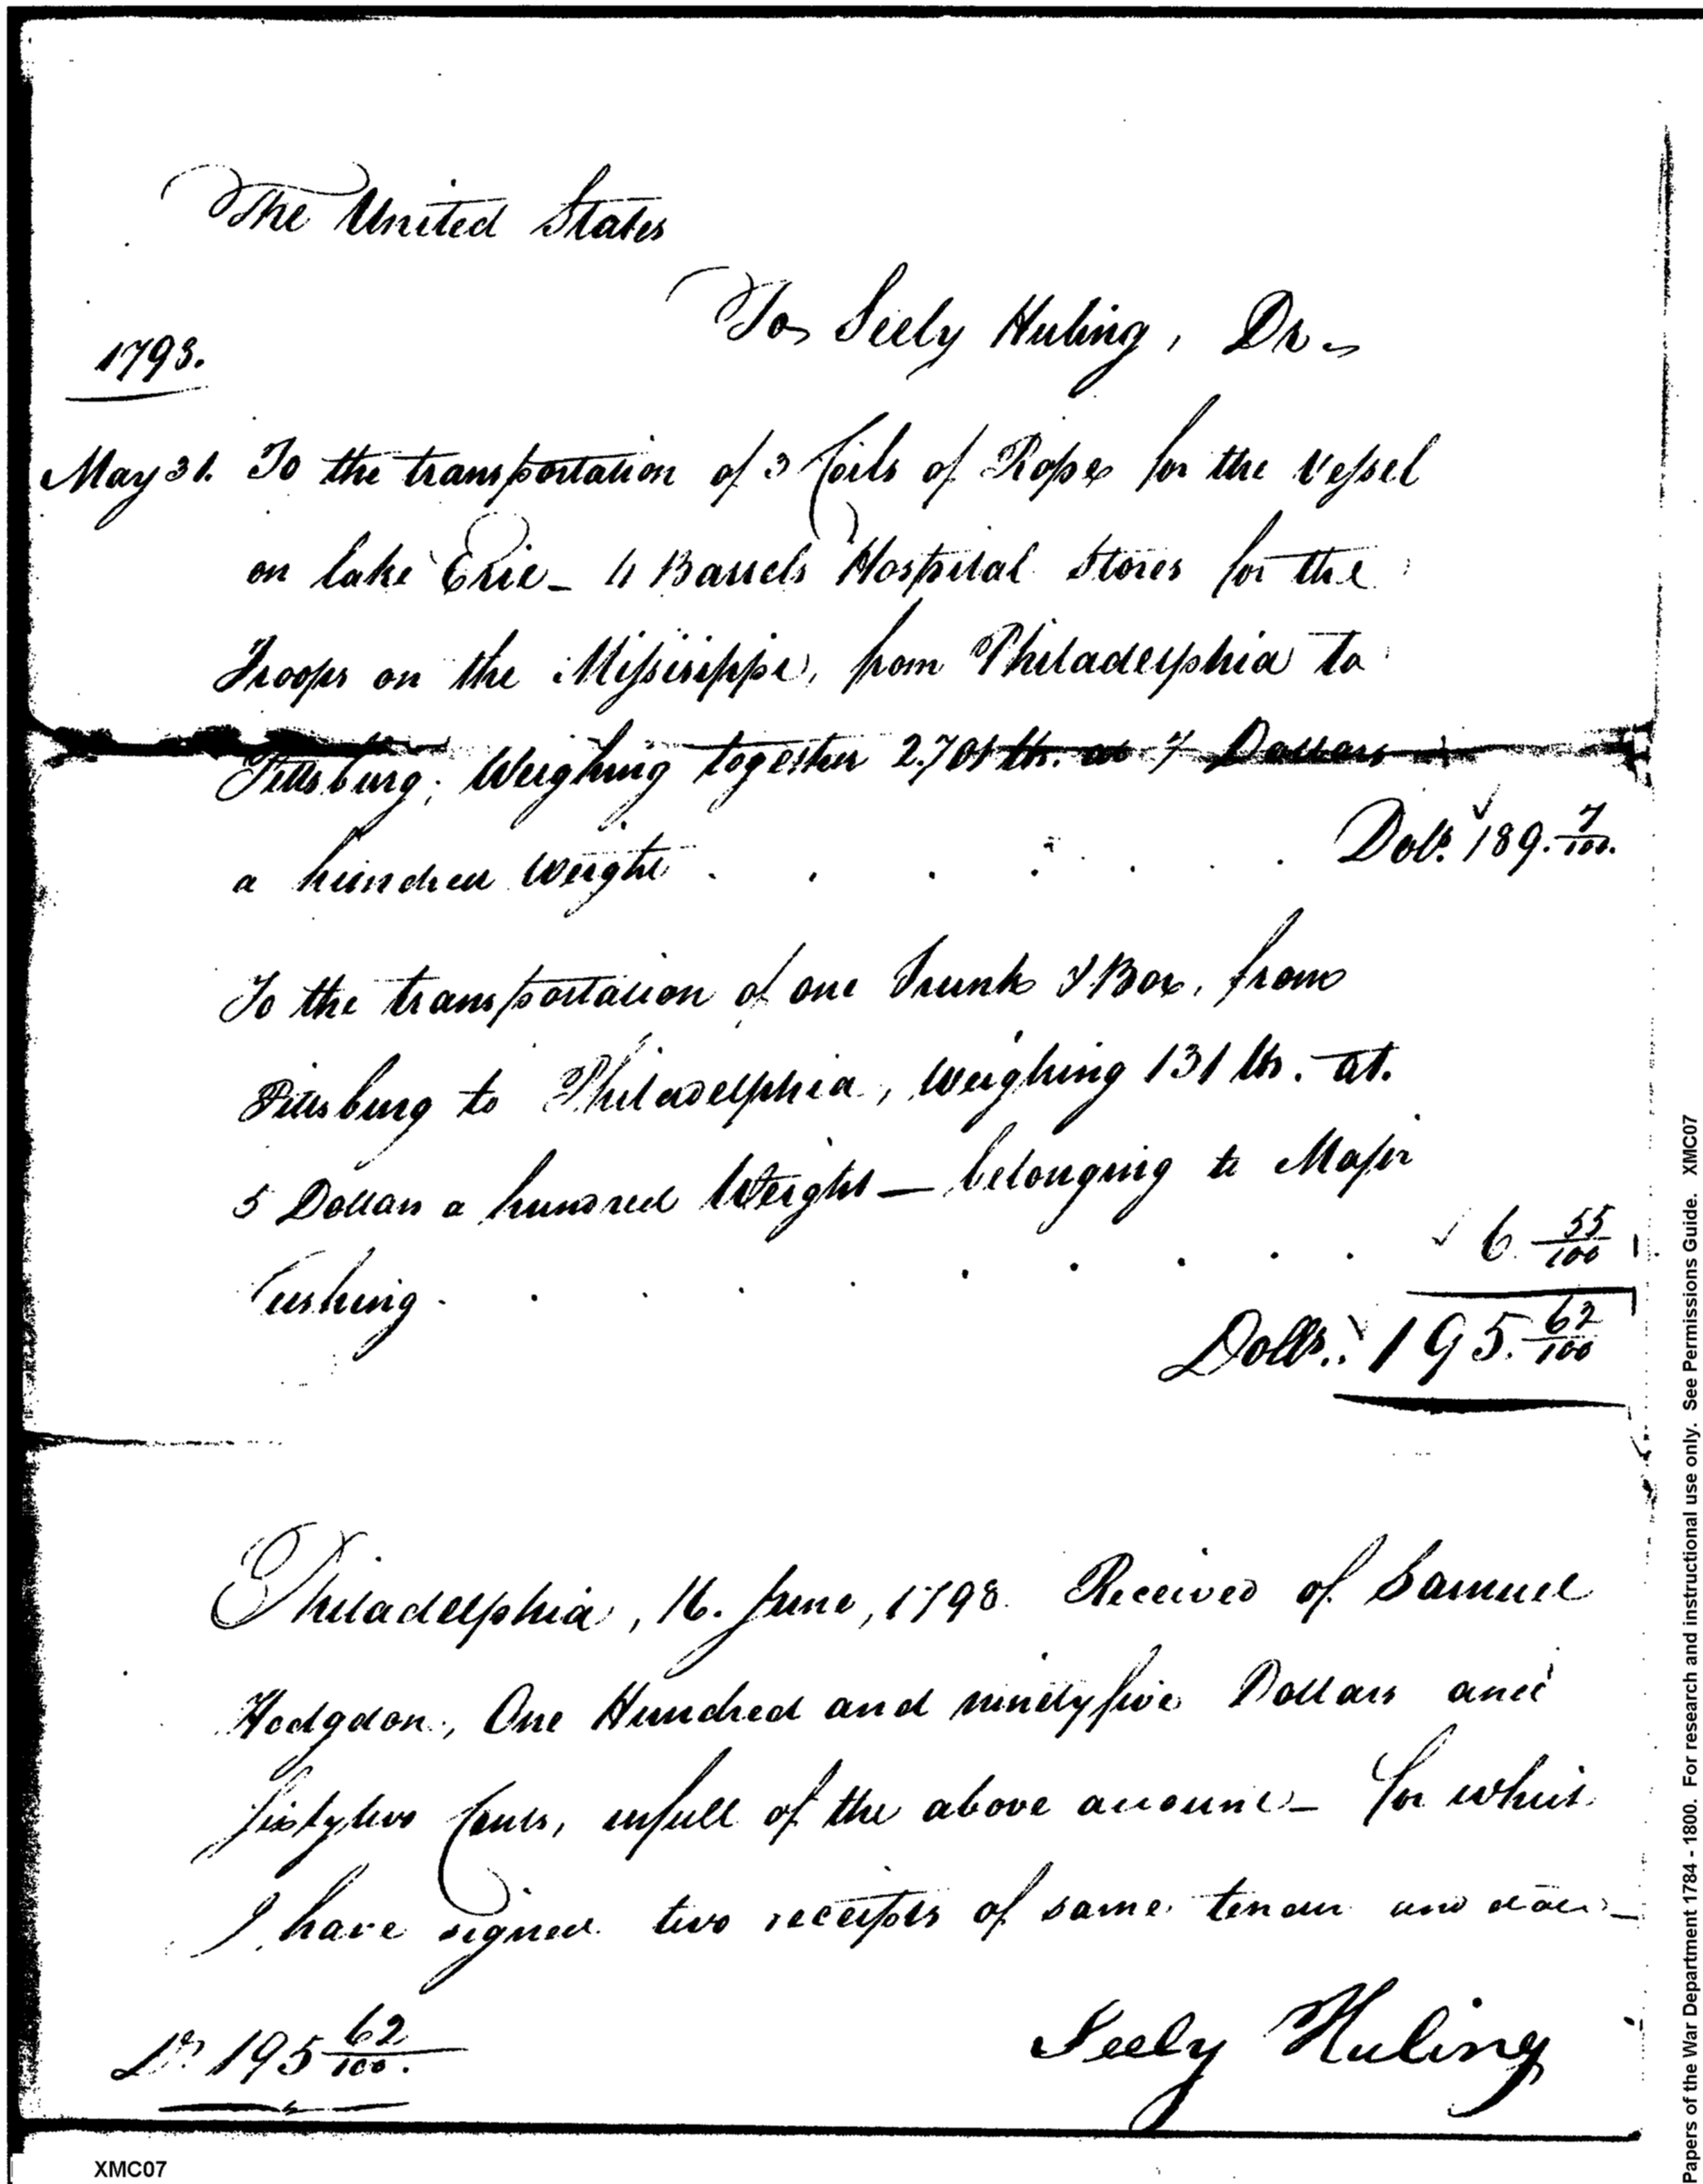 The United States
To Seely Huling, Dr.
1798.
May 31. To the transportation of 3 Coils of Rope for the Vessel
on lake Erie_ 4 Barrels Hospital Stores for the
Troops on the Missisippi, from Philadelphia to
Pittsburg, Weighing together 2.701 lb. at 7 Dollars
a hundred weight . . . . . . Dols. 189. 7/100.
To the transportation of one Trunk & Box, from
Pittsburg to Philadelphia, Weighing 131 lbs. at.
5 Dollars a hundred Weight — belonging to Major
Cushing . . . . . . . . . 6 55/100
Dolls. 195. 62/100
Philadelphia, 16. June, 1798. Received of Samuel
Hodgdon, One Hundred and ninetyfive Dollars and
sixtytwo Cents, infull of the above account_ for which
I have signed two receipts of same tenor and date_
Ds. 195 62/100.
Seely Huling
XMC07
Papers of the War Department 1784 - 1800. For research and instructional use only. See Permissions Guide. XMC07